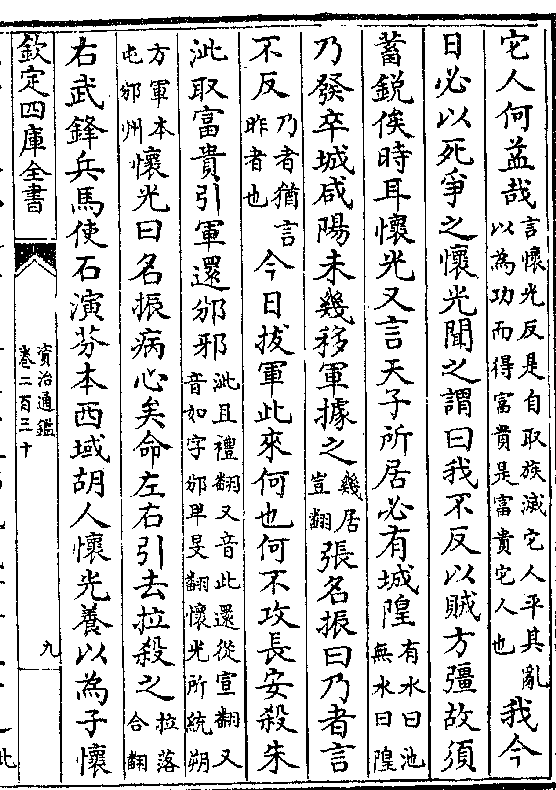 它人何益哉言懷光反是自取族滅它人平其亂以為功而得富貴是富貴它人也我今
日必以死爭之懷光聞之謂曰我不反以賊方彊故須
蓄銳俟時耳懷光又言天子所居必有城隍有水曰池無水曰隍
乃發卒城咸陽未幾移軍據之幾居豈翻張名振曰乃者言
不反乃者猶言昨者也今日拔軍此來何也何不攻長安殺朱
泚取富貴引軍還邠邪泚且禮翻又音此還從宣翻又音如字邠卑旻翻懷光所統朔
方軍本屯邠州懷光曰名振病心矣命左右引去拉殺之拉落合翻
右武鋒兵馬使石演芬本西域胡人懷光養以為子懷
欽定四庫全書
資治通鑑
卷二百三十
九